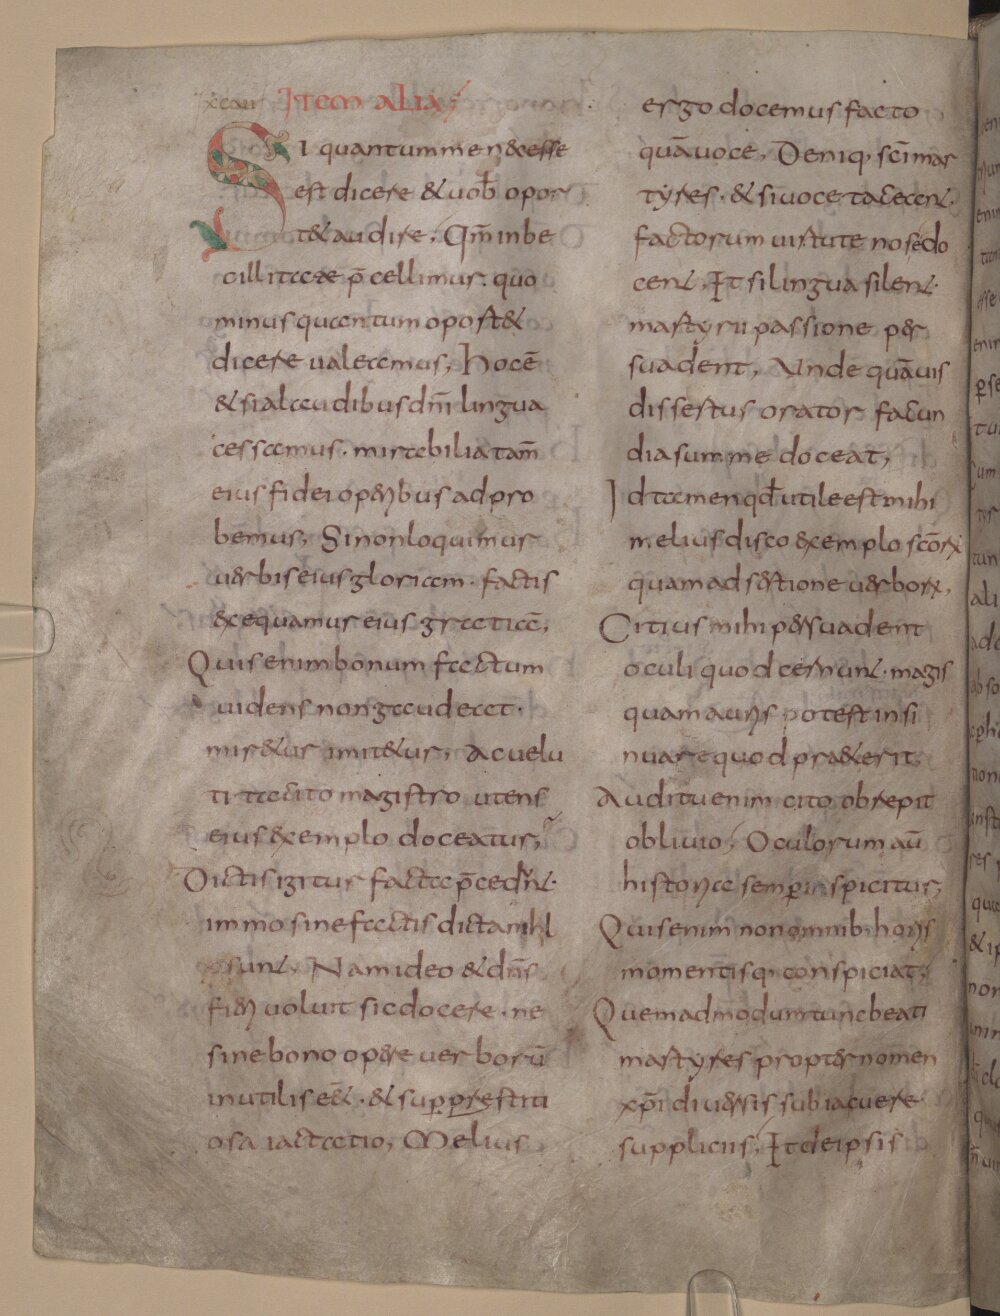 Item alia;
Si quantum me necesse
est dicere & uob̄ opor
t& audire; Qm̄ inbe
cillitate p̄cellimus. quo
minus quantum oport&
dicere ualeamus, Hoc ē
& si a laudibus dn̄i lingua
cessamus. mirabilia tam̄
eius fidei operibus adpro
bemus, Si non loquimur
uerbis eius gloriam. factis
exequamur eius gratiā;
Quis enim bonum factum
uidens non gauderet.
mir&ur imit&ur, Ac uelu
ti tacito magistro utens
eius exemplo doceatur;
Dictis igitur facta p̄cedunt.
immo sine factis dicta nihil
sunt. Nam ideo & dn̄s
fieri uoluit sic docere. ne
sine bono opere uerborū
inutilis eēt. & superstiti
osa iactatio, Melius
ergo docemus facto
quā uoce, Deniq; scīmar
tyres. & si uoce tacent.
factorum uirtute nos edo
cent, Et si lingua silent.
martyrii passione per
suadent, Unde quāuis
dissertus orator facun
dia summe doceat,
Id tamen qd̄ utile est mihi
melius disco exemplo scōrum
quam adsertione uerborum,
Citius mihi persuadent
oculi quod cernunt. magis
quam auris potest insi
nuare quod pra&erit,
Auditu enim cito obrepit
obliuio, Oculorum aū
historia semper inspicitur;
Quis enim non omnib; horis
momentisq; conspiciat;
Quemadmodum tunc beati
martyres propter nomen
xp̄i diuersis subiacuere
suppliciis, Et de ipsis